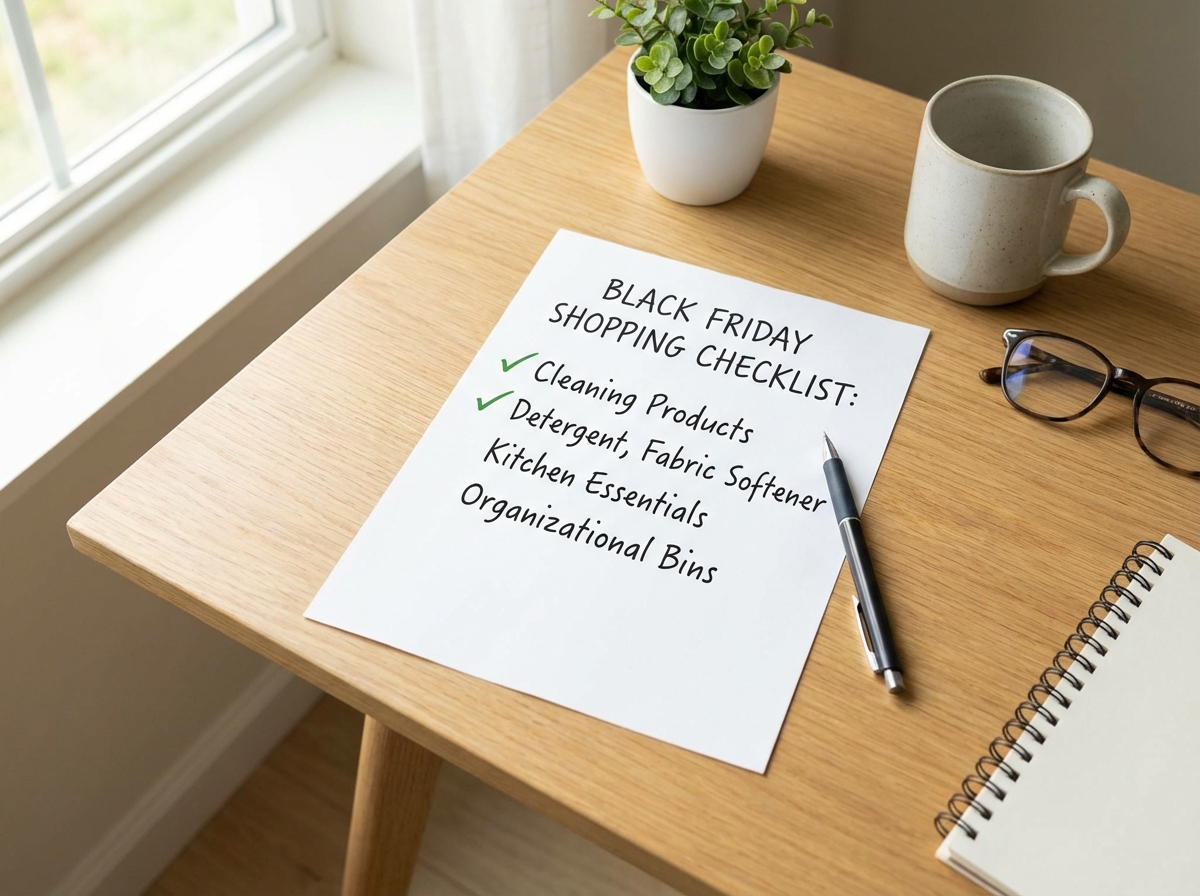 BLACK FRIDAY
SHOPPING CHECKLIST:
✓ Cleaning Products
✓ Detergent, Fabric Softener
Kitchen Essentials
Organizational Bins